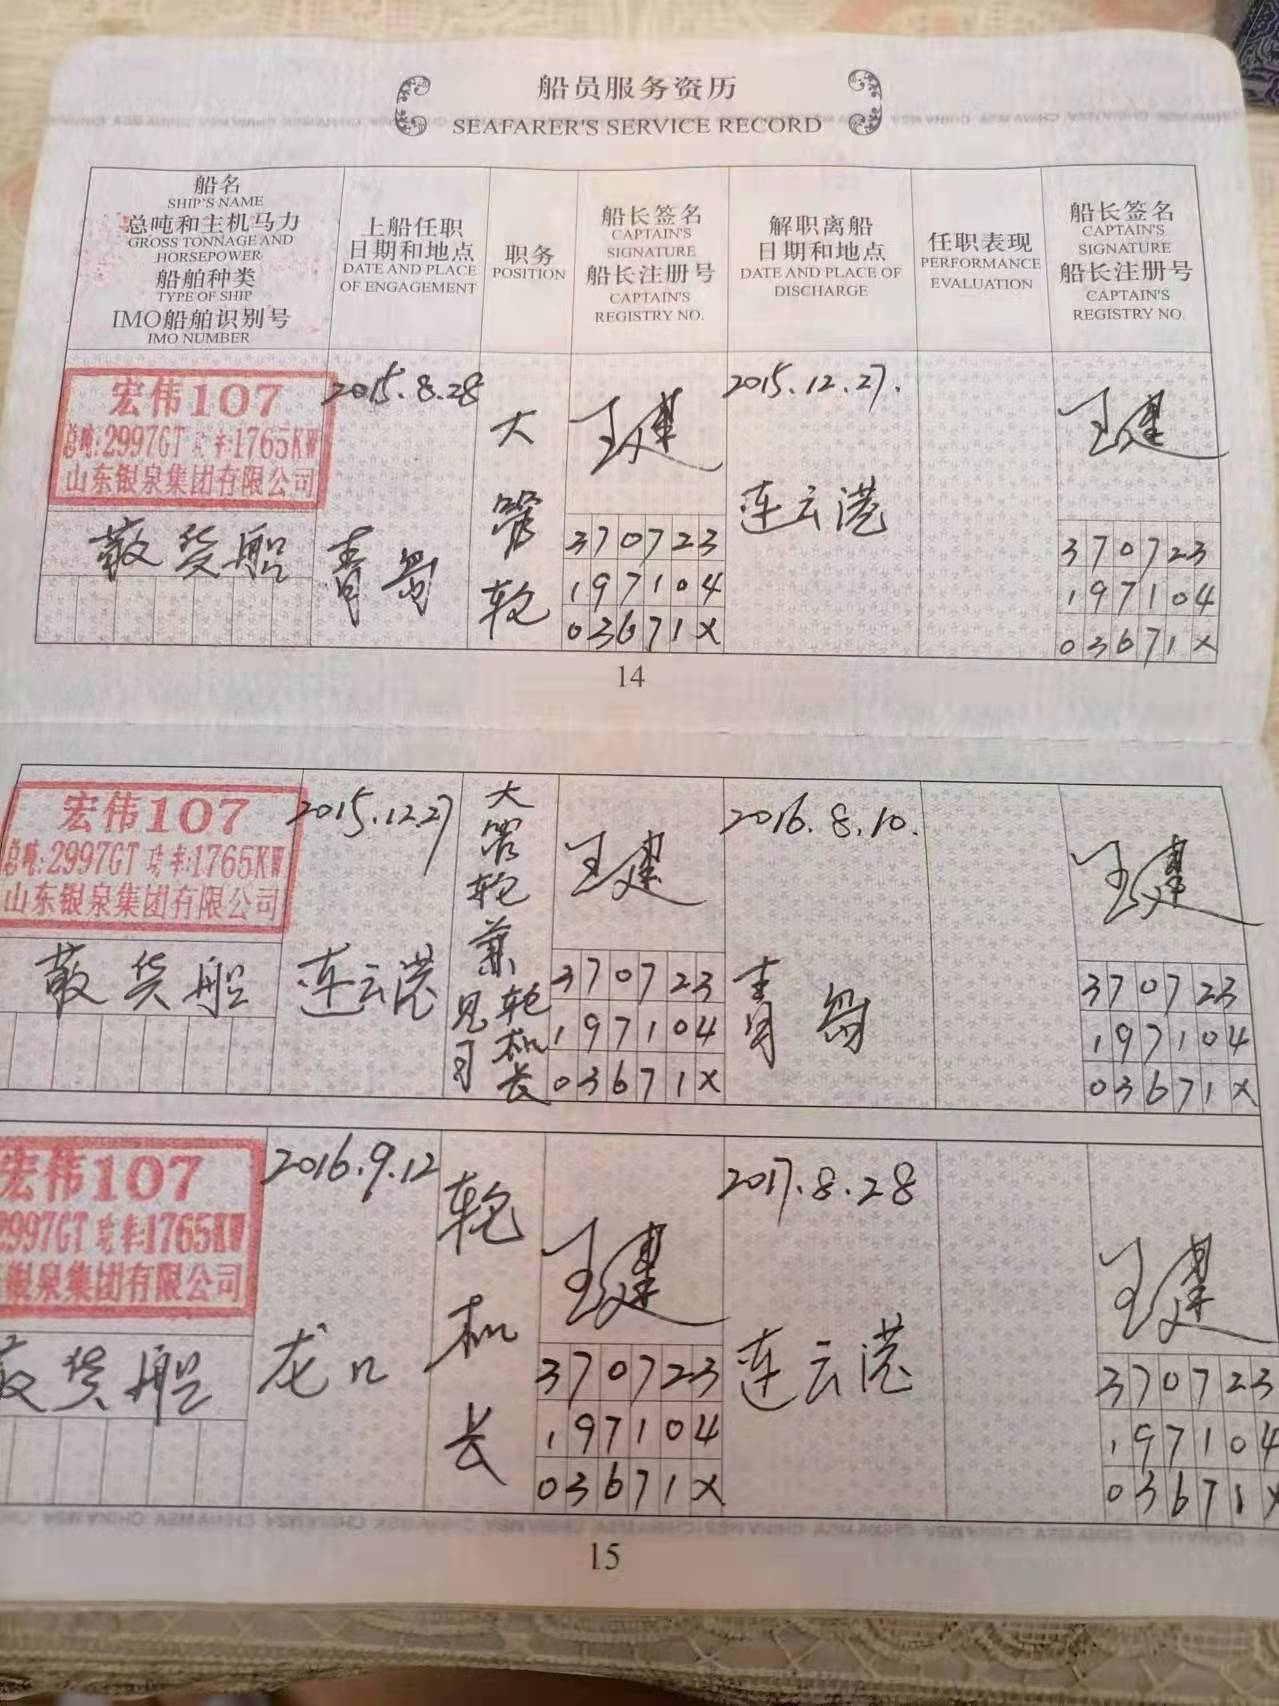 船员服务资历
SEAFARER'S SERVICE RECORD
船名
SHIP'S NAME
总吨和主机马力
GROSS TONNAGE AND
HORSEPOWER
船舶种类
TYPE OF SHIP
IMO船舶识别号
IMO NUMBER
上船任职
日期和地点
DATE AND PLACE
OF ENGAGEMENT
职务
POSITION
船长签名
CAPTAIN'S
SIGNATURE
船长注册号
CAPTAIN'S
REGISTRY NO.
解职离船
日期和地点
DATE AND PLACE OF
DISCHARGE
任职表现
PERFORMANCE
EVALUATION
船长签名
CAPTAIN'S
SIGNATURE
船长注册号
CAPTAIN'S
REGISTRY NO.
宏伟107
总吨:2997GT 功率:1765KW
山东银泉集团有限公司
散货船
2015.8.28
青岛
大管轮
王建
370723
197104
03671X
2015.12.27.
连云港
王建
370723
197104
03671X
14
宏伟107
总吨:2997GT 功率:1765KW
山东银泉集团有限公司
散货船
2015.12.27
连云港
大管轮兼见习
轮机长
王建
370723
197104
03671X
2016.8.10.
青岛
王建
370723
197104
03671X
宏伟107
2997GT 功率:1765KW
银泉集团有限公司
散货船
2016.9.12
龙口
轮机长
王建
370723
197104
03671X
2017.8.28
连云港
王建
370723
197104
03671X
15